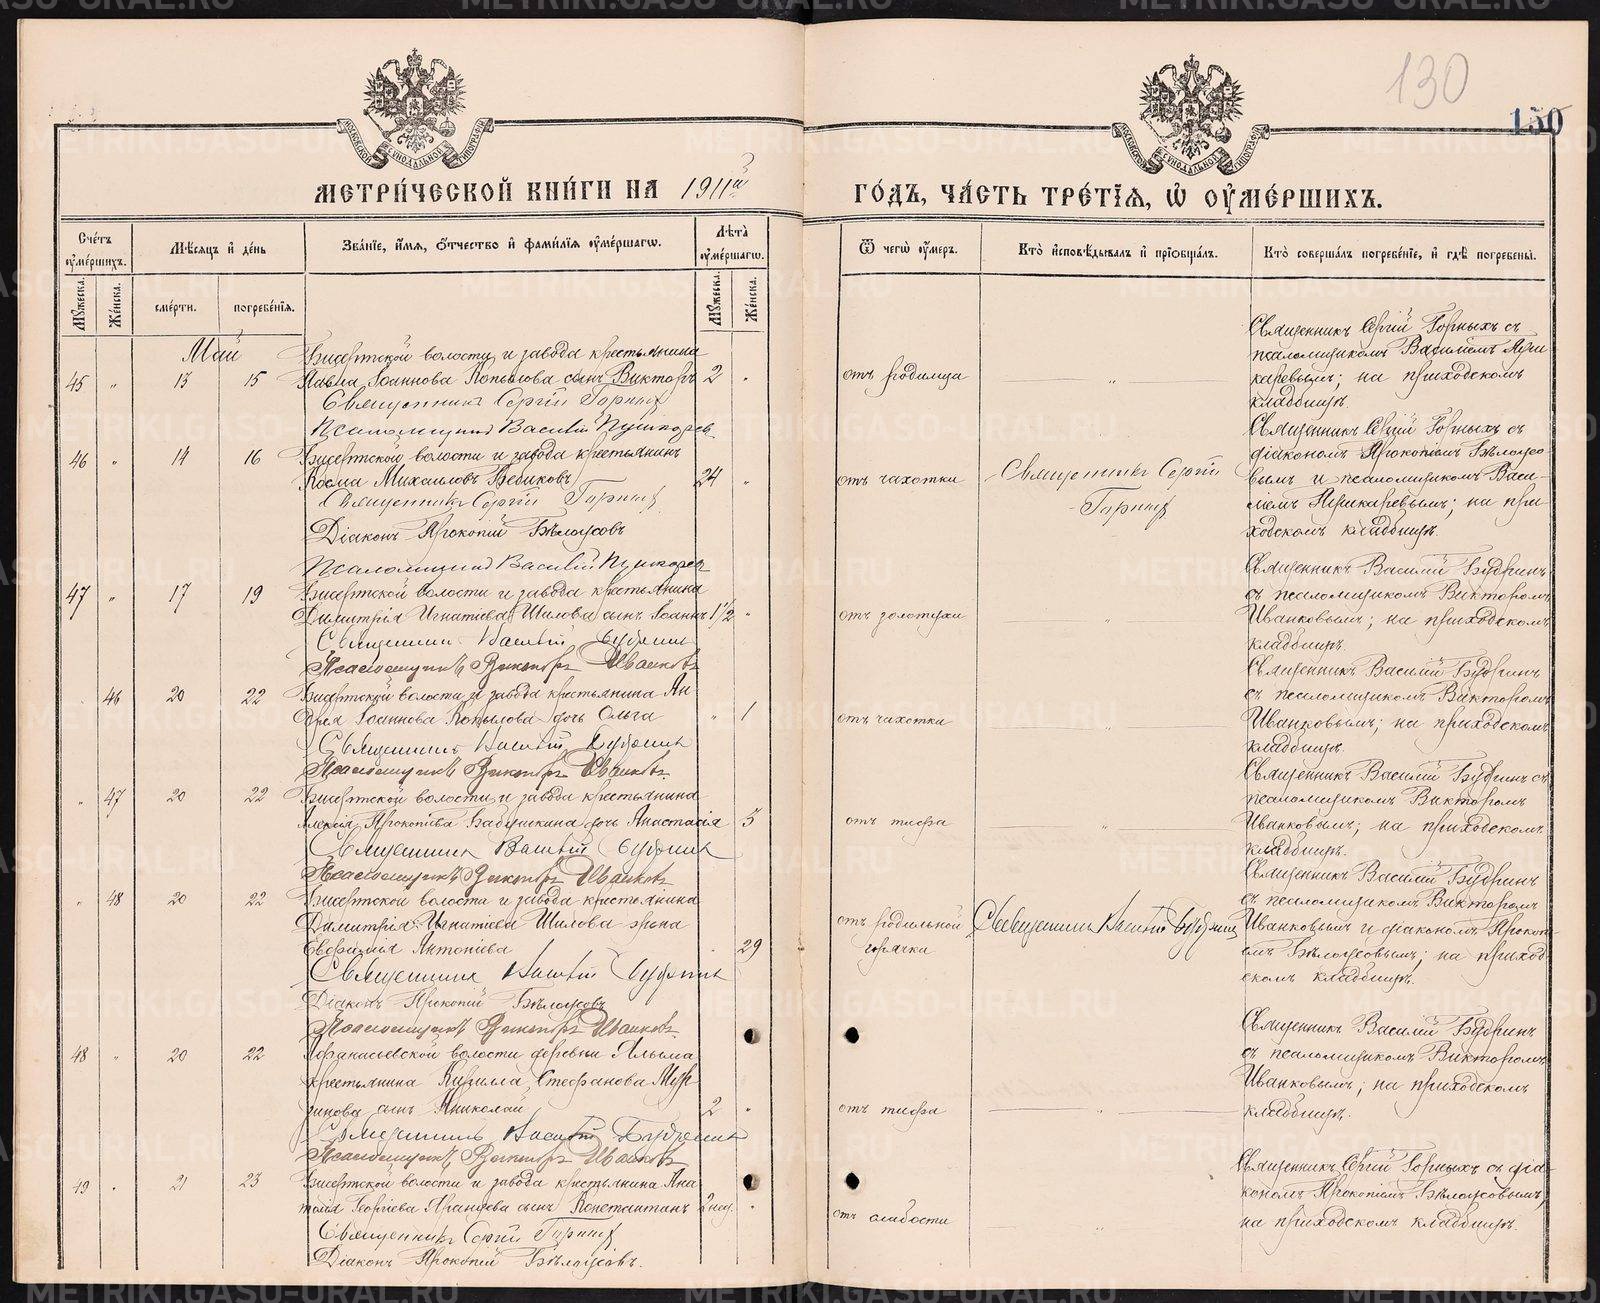 130
150
МЕТРИ́ЧЕСКОЙ КНИ́ГИ НА 1911й
ГО́ДЪ, ЧА́СТЬ ТРЕ́ТІѦ, Ѡ ОУМЕ́РШИХЪ.
Сче́тъ оумершихъ.
Мужеска.
Же́нска.
Мѣсяцъ и де́нь
сме́рти.
погребе́нія.
Зва́ніе, и́мя, о́тчество и фами́лія оуме́ршагѡ.
Лѣта̀ оуме́ршагѡ.
Мужеска.
Же́нска.
Ѿ чегѡ̀ оумеръ.
Кто̀ исповѣдывалъ и пріобща́лъ.
Кто̀ соверша́лъ погребе́ніе, и гдѣ̀ погребены̀.
Май
45 " 13 15
Бисертской волости и завода крестьянина
Павла Іоаннова Копылова сынъ Викторъ 2 "
Священникъ Сергій Горныхъ
Псаломщикъ Василій Пушкаревъ
отъ родимца
"
Священникъ Сергій Горныхъ съ
псаломщикомъ Василіемъ Пуш-
каревымъ; на приходскомъ
кладбищѣ.
46 " 14 16
Бисертской волости и завода крестьянинъ
Косма Михаиловъ Бебиковъ 24 "
Священникъ Сергій Горныхъ
Діаконъ Прокопій Бѣлоусовъ
Псаломщикъ Василій Пушкаревъ
отъ чахотки
Священникъ Сергій
Горныхъ
Священникъ Сергій Горныхъ съ
діакономъ Прокопіемъ Бѣлоусо-
вымъ и псаломщикомъ Васи-
ліемъ Пушкаревымъ; на при-
ходскомъ кладбищѣ.
47 " 17 19
Бисертской волости и завода крестьянина
Димитрія Игнатіева Шилова сынъ Іоаннъ 1½ "
Священникъ Василій Будринъ
Псаломщикъ Викторъ Иванковъ
отъ золотухи
"
Священникъ Василій Будринъ
съ псаломщикомъ Викторомъ
Иванковымъ; на приходскомъ
кладбищѣ.
" 46 20 22
Бисертской волости и завода крестьянина Ан-
дрея Іоаннова Копылова дочь Ольга " 1
Священникъ Василій Будринъ
Псаломщикъ Викторъ Иванковъ
отъ чахотки
"
Священникъ Василій Будринъ
съ псаломщикомъ Викторомъ
Иванковымъ; на приходскомъ
кладбищѣ.
" 47 20 22
Бисертской волости и завода крестьянина
Алексія Прокопіева Бабушкина дочь Анастасія 5
Священникъ Василій Будринъ
Псаломщикъ Викторъ Иванковъ
отъ тифа
"
Священникъ Василій Будринъ съ
псаломщикомъ Викторомъ
Иванковымъ; на приходскомъ
кладбищѣ.
" 48 20 22
Бисертской волости и завода крестьянина
Димитрія Игнатіева Шилова жена
Евфимія Антоніева 29
Священникъ Василій Будринъ
Діаконъ Прокопій Бѣлоусовъ
Псаломщикъ Викторъ Иванковъ
отъ родильной
горячки
Священникъ Василій Будринъ
Священникъ Василій Будринъ
съ псаломщикомъ Викторомъ
Иванковымъ и діакономъ Прокопі-
емъ Бѣлоусовымъ; на приход-
скомъ кладбищѣ.
48 " 20 22
Афанасіевской волости деревни Ялыма
крестьянина Кирилла Стефанова Мух-
Николай 2 "
Священникъ Василій Будринъ
Псаломщикъ Викторъ Иванковъ
отъ тифа
"
Священникъ Василій Будринъ
съ псаломщикомъ Викторомъ
Иванковымъ; на приходскомъ
кладбищѣ.
49 " 21 23
Бисертской волости и завода крестьянина Ана-
толія Георгіева сынъ Константинъ 2 нед. "
Священникъ Сергій Горныхъ
Діаконъ Прокопій Бѣлоусовъ.
отъ слабости
"
Священникъ Сергій Горныхъ съ діа-
кономъ Прокопіемъ Бѣлоусовымъ;
на приходскомъ кладбищѣ.
METRIKI.GASO-URAL.RU